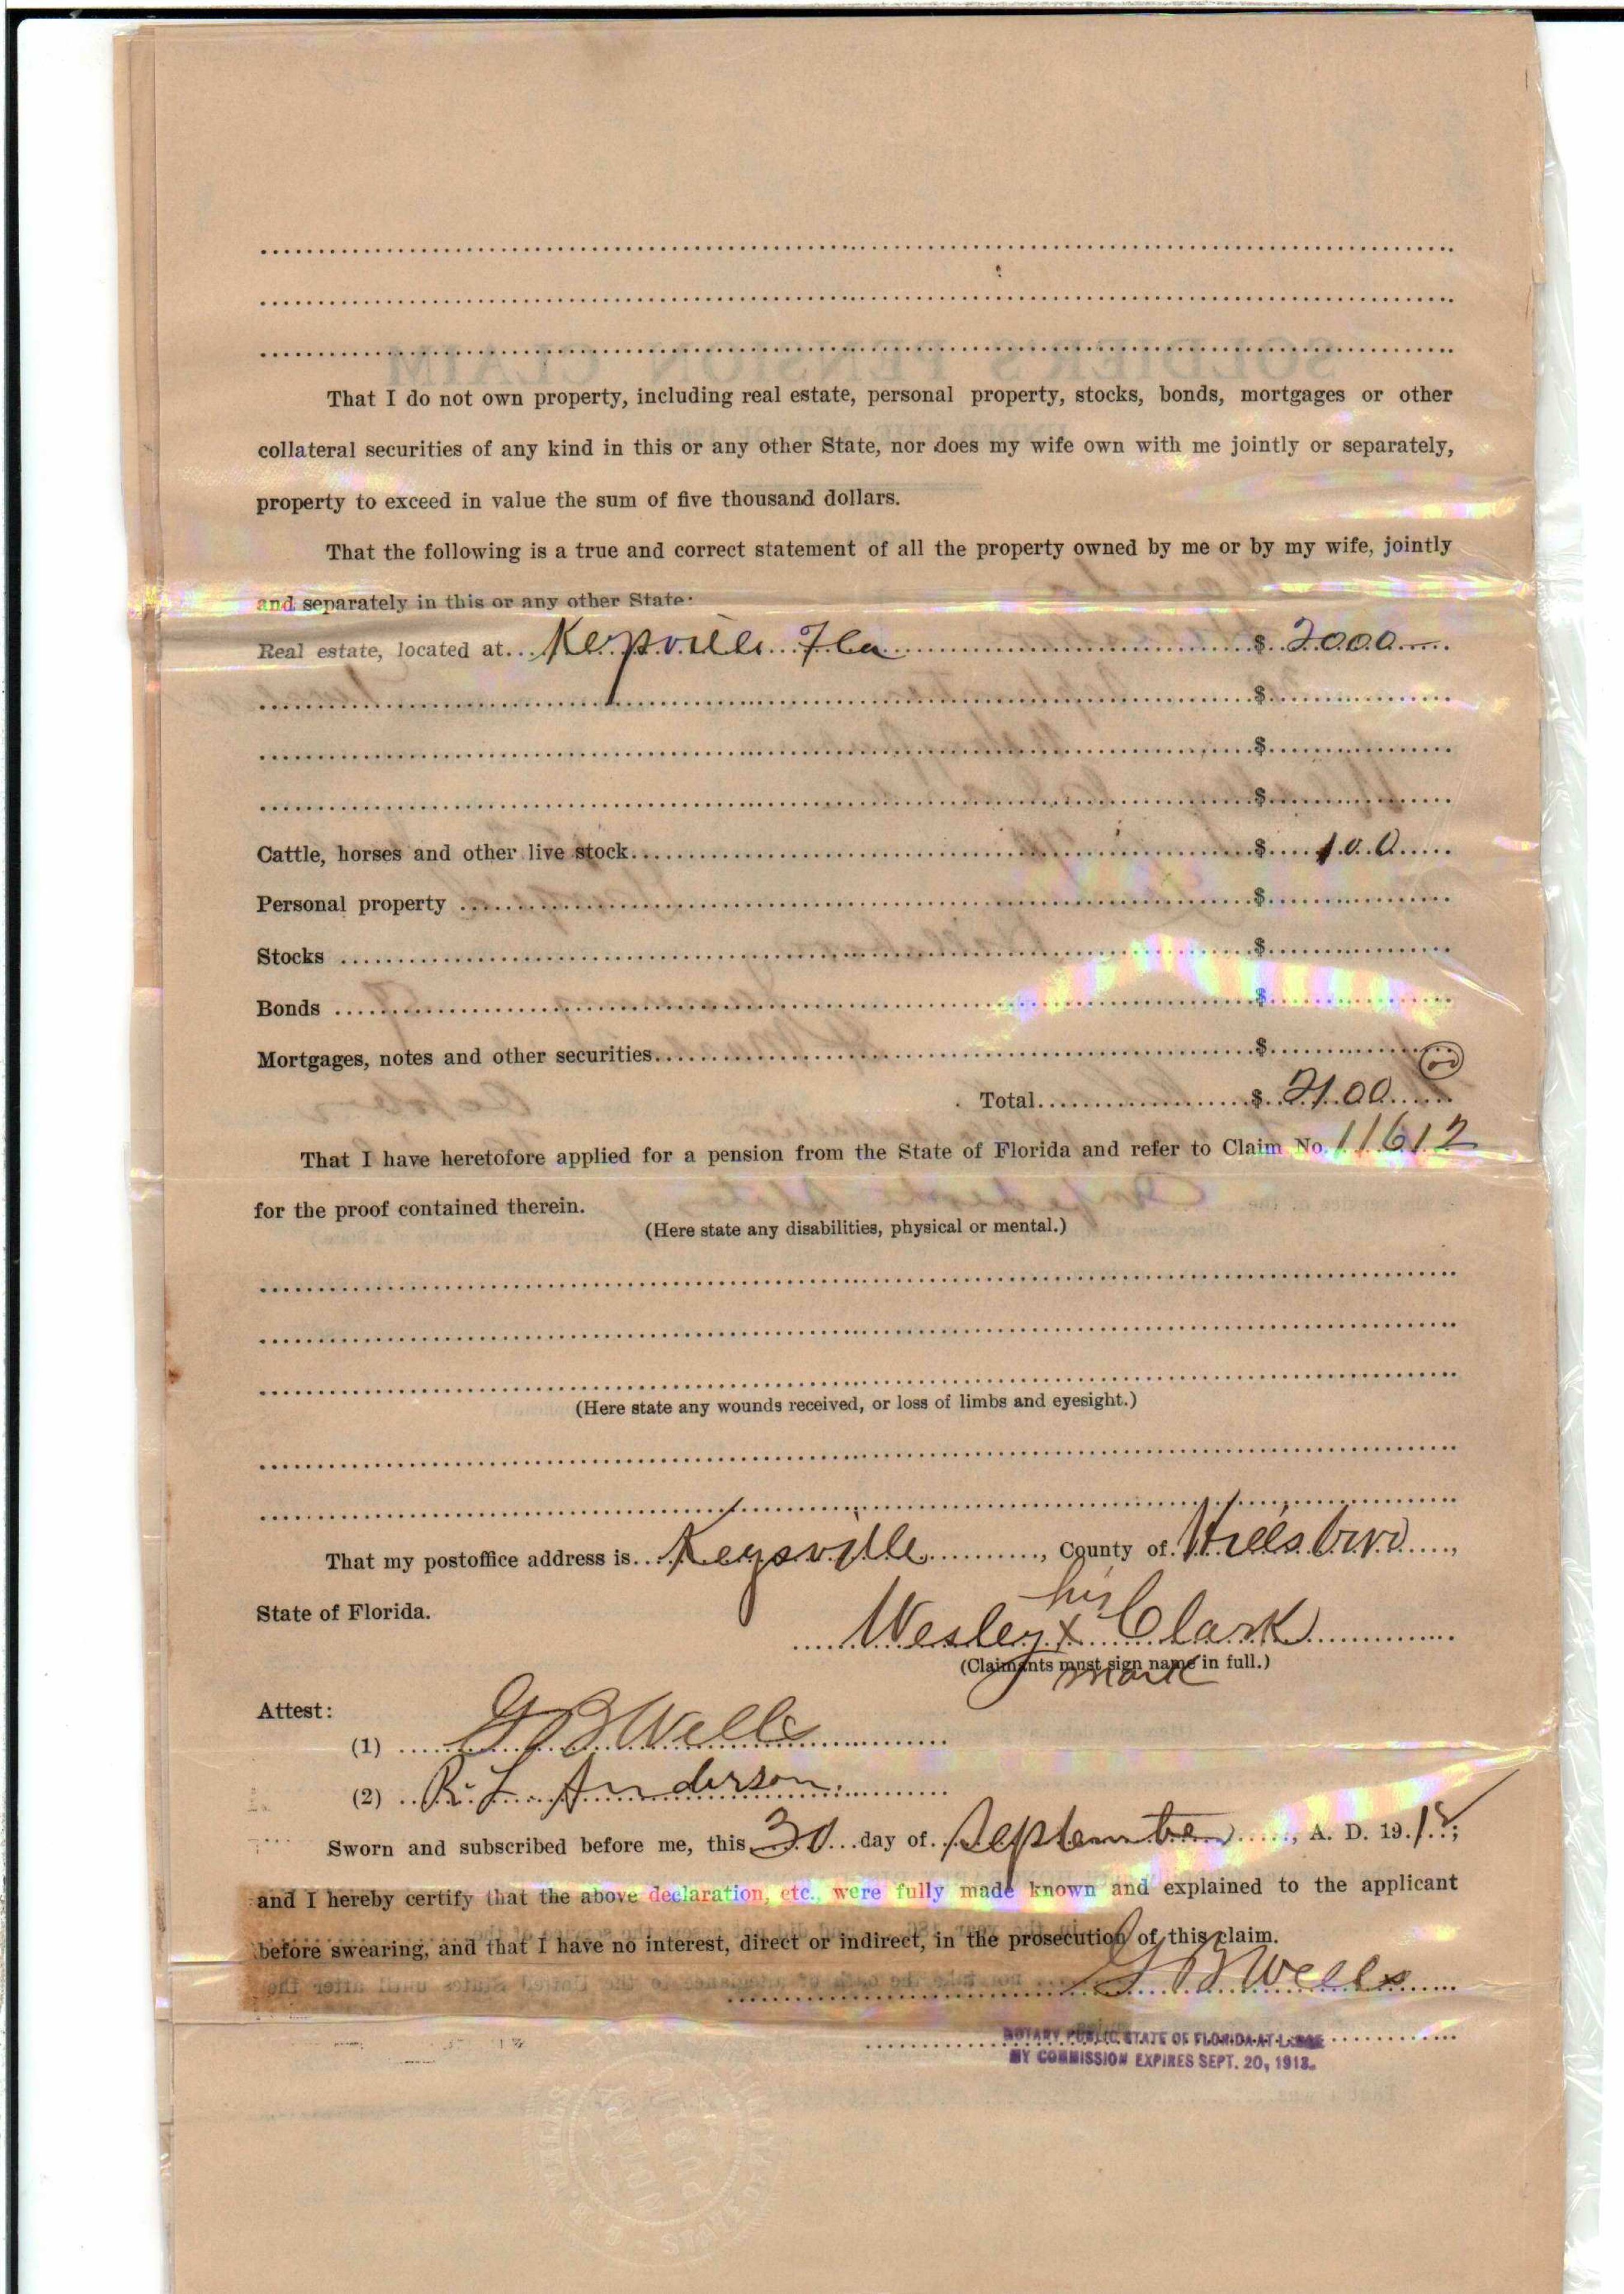 That I do not own property, including real estate, personal property, stocks, bonds, mortgages or other
collateral securities of any kind in this or any other State, nor does my wife own with me jointly or separately,
property to exceed in value the sum of five thousand dollars.
That the following is a true and correct statement of all the property owned by me or by my wife, jointly
and separately in this or any other State:
Real estate, located at Keysville Fla $ 2000
$
$
$
Cattle, horses and other live stock $ 100
Personal property $
Stocks $
Bonds $
Mortgages, notes and other securities $
Total $ 2100
That I have heretofore applied for a pension from the State of Florida and refer to Claim No. 11612
for the proof contained therein.
(Here state any disabilities, physical or mental.)
(Here state any wounds received, or loss of limbs and eyesight.)
That my postoffice address is Keysville, County of Hillsboro,
State of Florida.
his
Wesley x Clark
(Claimants must sign name in full.)
mark
Attest:
(1) G B Wells
(2) R. L. Anderson
Sworn and subscribed before me, this 30 day of September, A. D. 19
and I hereby certify that the above declaration, etc., were fully made known and explained to the applicant
before swearing, and that I have no interest, direct or indirect, in the prosecution of this claim.
G B Wells
NOTARY PUBLIC STATE OF FLORIDA AT LARGE
MY COMMISSION EXPIRES SEPT. 20, 1913.